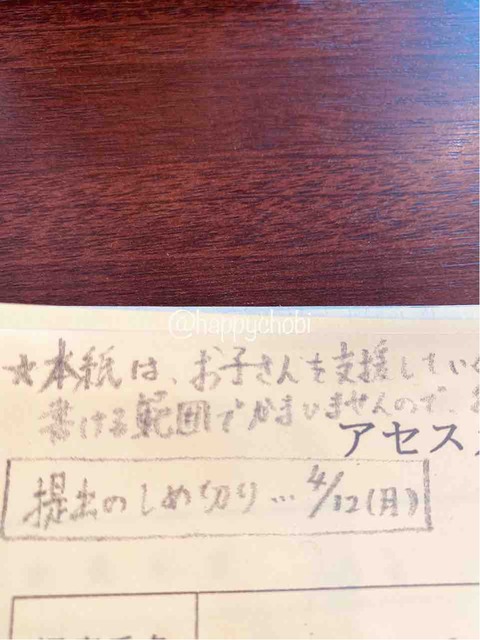 @happychobi
☆本紙は、お子さんを支援してい
書ける範囲でかまいませんので、
アセス
提出のしめ切り…4/12(月)